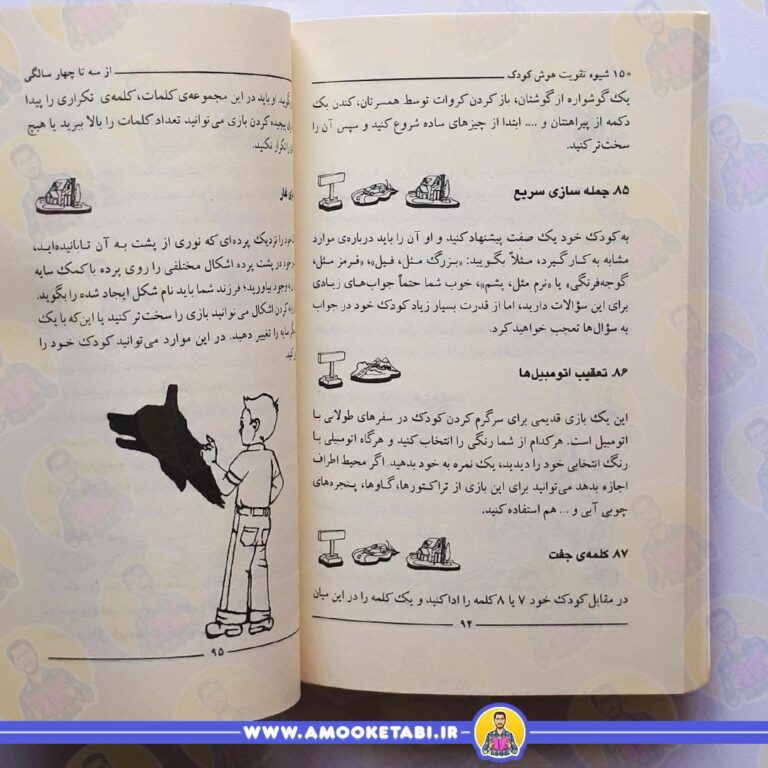 ۱۵۰ شیوه تقویت هوش کودک
یک گوشواره از گوشتان، باز کردن کروات توسط همسرتان، کندن یک
دکمه از پیراهنتان و .... ابتدا از چیزهای ساده شروع کنید و سپس آن را
سخت‌تر کنید.
۸۵. جمله سازی سریع
به کودک خود یک صفت پیشنهاد کنید و او آن را باید درباره‌ی موارد
مشابه به کار گیرد، مثلاً بگویید: «بزرگ مثل، فیل»، «قرمز مثل،
گوجه‌فرنگی» یا «نرم مثل، پشم»، خوب شما حتماً جواب‌های زیادی
برای این سؤالات دارید، اما از قدرت بسیار زیاد کودک خود در جواب
به سؤال‌ها تعجب خواهید کرد.
۸۶. تعقیب اتومبیل‌ها
این یک بازی قدیمی برای سرگرم کردن کودک در سفرهای طولانی با
اتومبیل است. هرکدام از شما رنگی را انتخاب کنید و هرگاه اتومبیلی با
رنگ انتخابی خود را دیدید، یک نمره به خود بدهید. اگر محیط اطراف
اجازه بدهد می‌توانید برای این بازی از تراکتورها، گاوها، پنجره‌های
چوبی آبی و ... هم استفاده کنید.
۸۷. کلمه‌ی جفت
در مقابل کودک خود ۷ یا ۸ کلمه را ادا کنید و یک کلمه را در این میان
۹۴
از سه تا چهار سالگی
او باید در این مجموعه‌ی کلمات، کلمه‌ی تکراری را پیدا
کردن بازی می‌توانید تعداد کلمات را بالا ببرید یا هیچ
تکرار نکنید.
را نزدیک پرده‌ای که نوری از پشت به آن تابانیده‌اید،
در پشت پرده اشکال مختلفی را روی پرده با کمک سایه
وجود بیاورید، فرزند شما باید نام شکل ایجاد شده را بگوید.
کردن اشکال می‌توانید بازی را سخت‌تر کنید یا این‌که با یک
سایه را تغییر دهید. در این موارد می‌توانید کودک خود را
۹۵
WWW.AMOOKETABI.IR